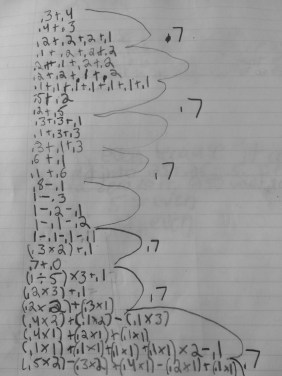 .3+.4 .7
.4+.3
.2+.2+.2+.1
.1+.2+.2+.2
.2+.1+.2+.2
.2+.2+.1+.2
.1+.1+.1+.1+.1+.1+.1
.5+.2 .7
.2+.5
.3+.3+.1
.1+.3+.3
.3+.1+.3
.6+.1 .7
.1+.6
.8-.1
1-.3
1-.2-.1
1-.1-.2
1-.1-.1-.1 .7
(.3×2)+.1
.7+.0
(1÷5)×3+.1
(.2×3)+.1 .7
(.2×2)+(.3×1)
(.4×2)+(.1×2)-(.1×3)
(.4×1)+(.2×1)+(.1×1)
(.1×1)+(.1×1)+(.1×1)+(.1×1)×2-.1
(.5×2)-(.3×2)+(.4×1)-(.2×1)+(.1×1) .7